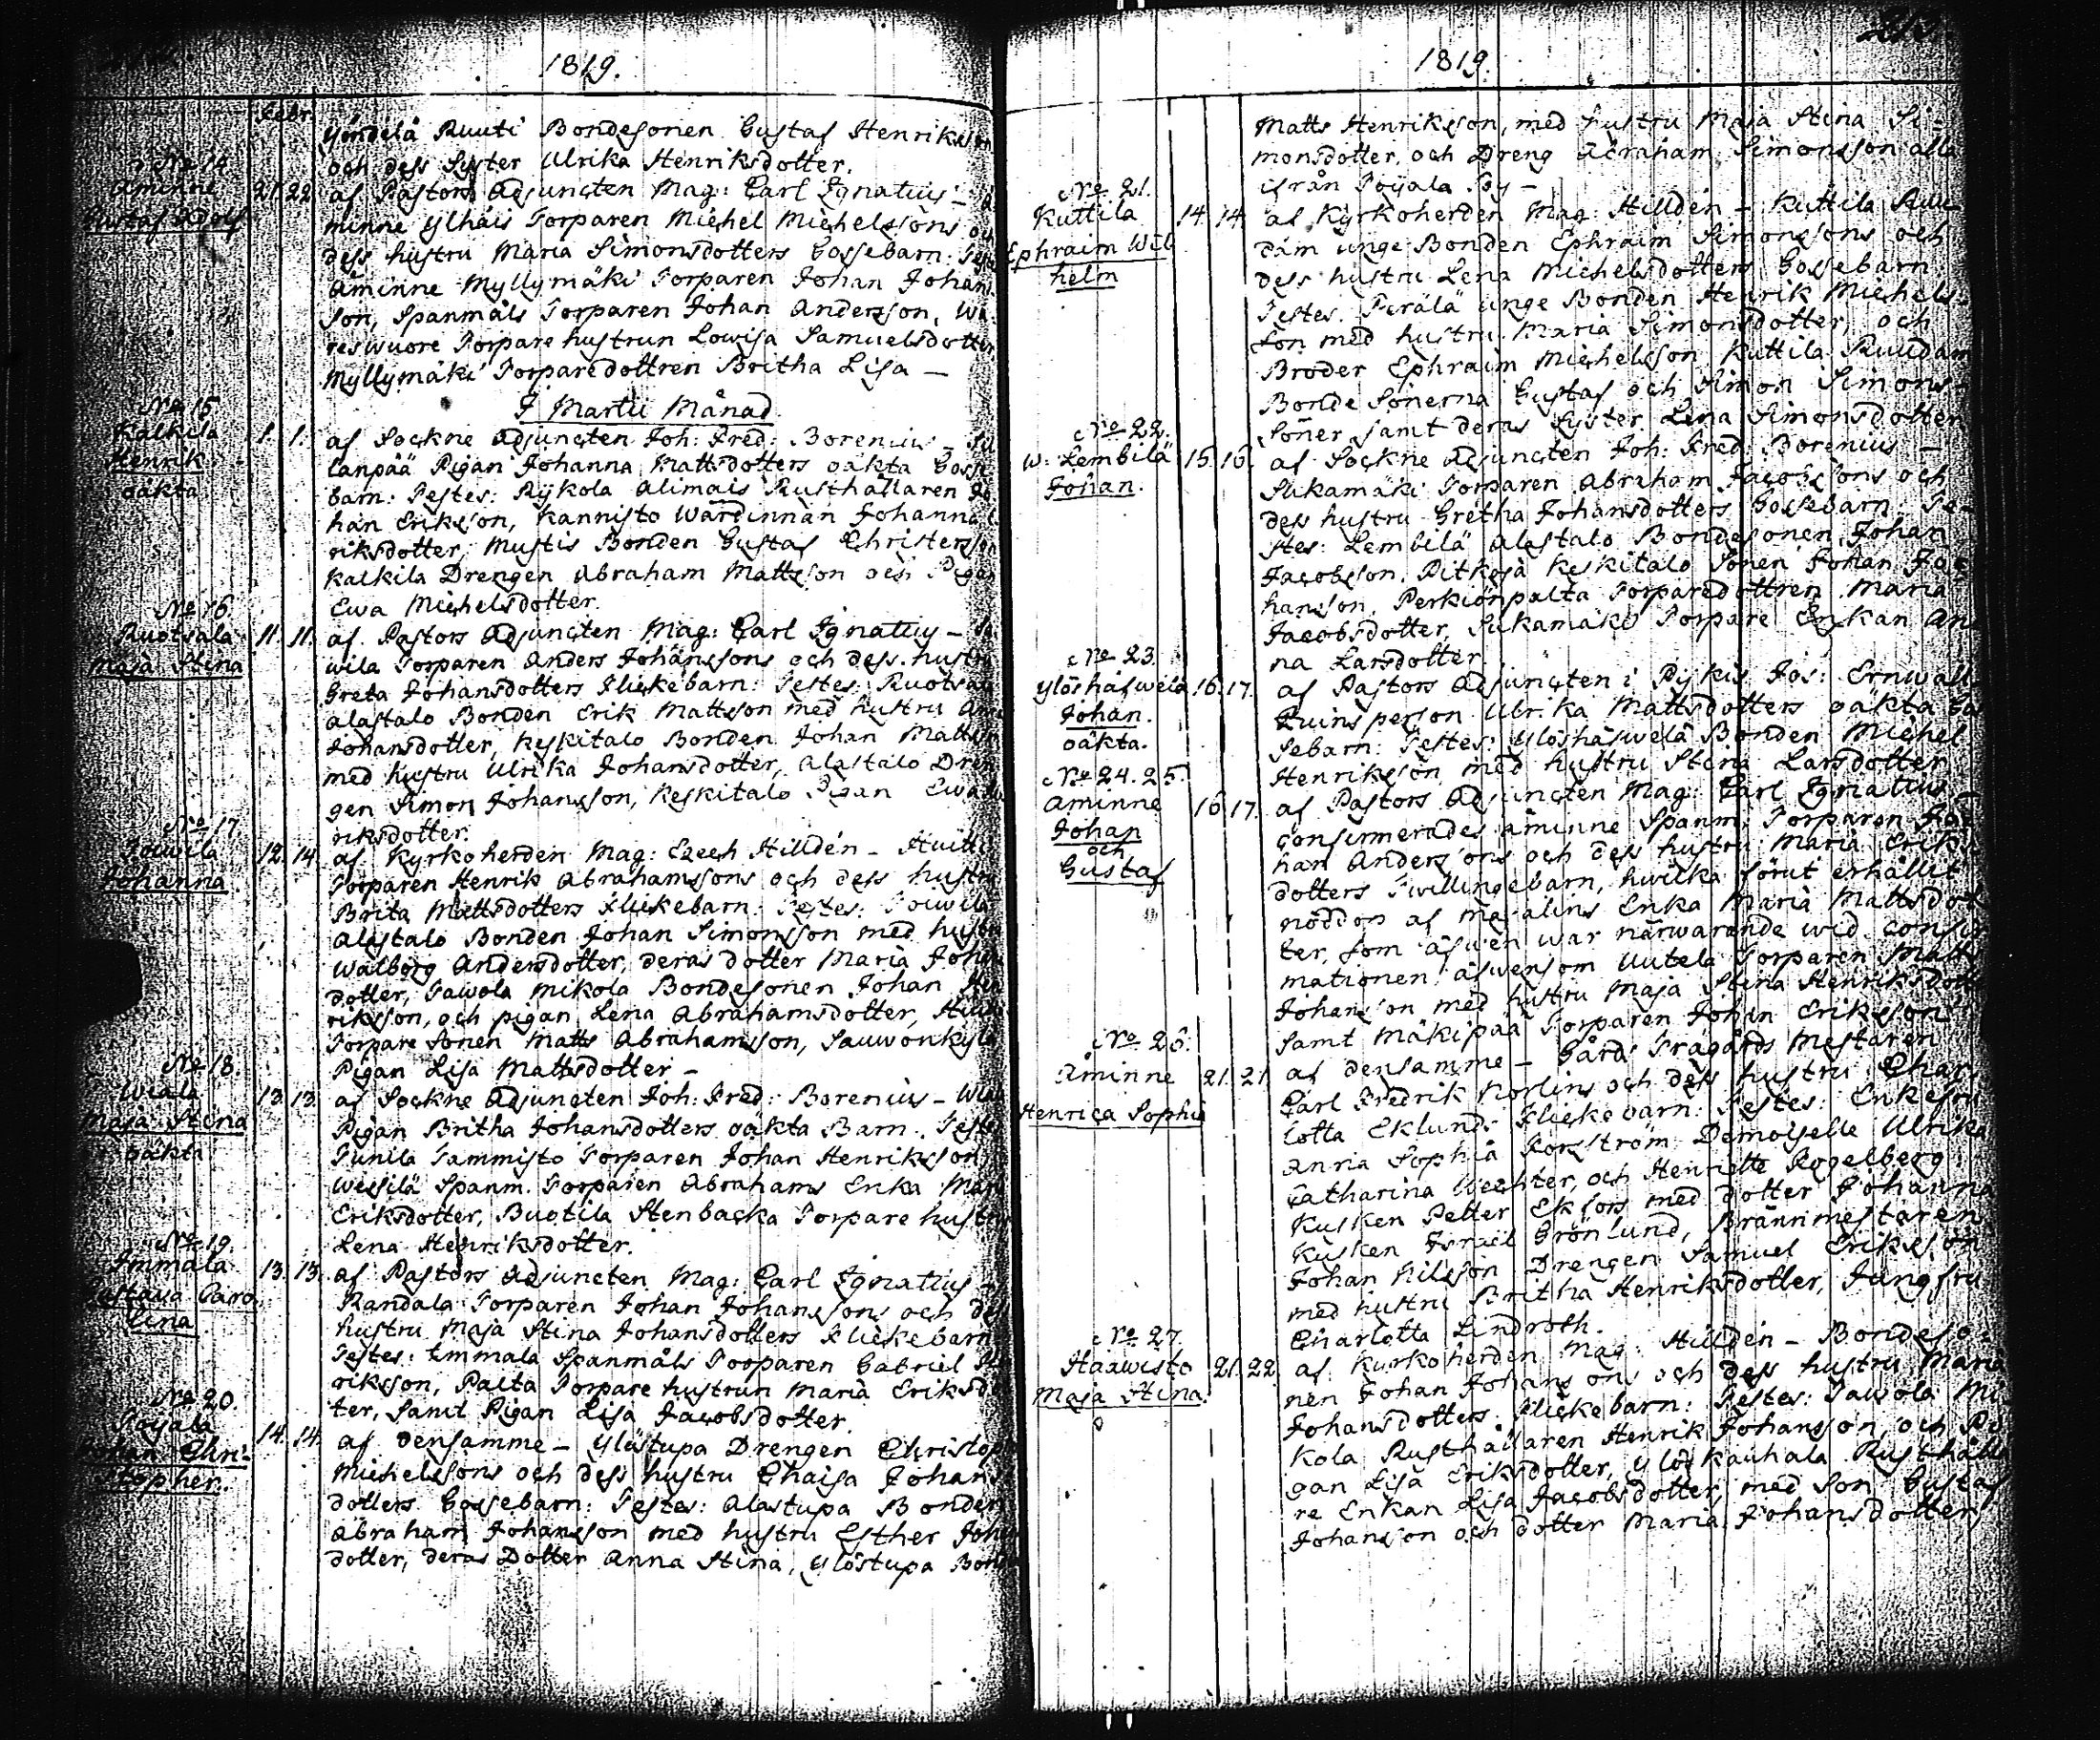 1819.
Febr.
Yöndelä Ruuti Bondesonen Gustaf Henriksson
och dess Syster Ulrika Henriksdotter.
No 14.
Åminne 21. 22. af Pastors Adjuncten Mag: Carl Ignatius – Å
Gustaf Adolf minne Ylhäis Torparen Michel Michelssons och
dess hustru Maria Simonsdotters Gossebarn: Testes
Åminne Myllymäki Torparen Johan Johans-
son, Spanmåls Torparen Johan Andersson, Wa-
reswuore Torpare hustrun Lowisa Samuelsdotter
Myllymäki Torparedottren Britha Lisa –
I Martii Månad
No 15.
Kalkila 1. 1. af Sockne Adjuncten Joh: Fred: Borenius –
Henrik lanpää Pigan Johanna Mattsdotters oäkta Gosse
oäkta barn: Testes: Rykola Alimais Rusthållaren Jo
han Eriksson, Kannisto Wärdinnan Johanna
riksdotter, Mustis Bonden Gustaf Christersson
Kalkila Drengen Abraham Mattsson och Pigan
Ewa Michelsdotter.
No 16.
Ruotsala 11. 11. af Pastors Adjuncten Mag: Carl Ignatius –
Maja Stina wila Torparen Anders Johanssons och dess hustru
Greta Johansdotters Flickebarn: Testes: Ruotsala
Alastalo Bonden Erik Mattsson med hustru
Johansdotter, Keskitalo Bonden Johan Mattsson
med hustru Ulrika Johansdotter, Alastalo Dren
gen Simon Johansson, Keskitalo Pigan Ewa
riksdotter.
No 17.
Jouwila 12. 14. af Kyrkoherden Mag: Ezech Hilldén – Huitti
Johanna Torparen Henrik Abrahamssons och dess hustru
Brita Mattsdotters Flickebarn: Testes: Jouwila
Alastalo Bonden Johan Simonsson med hustru
Walborg Andersdotter, deras dotter Maria Johans
dotter, Tawola Mikola Bondesonen Johan Hen
riksson, och pigan Lena Abrahamsdotter, Huitti
Torpare Sonen Matts Abrahamsson, Sauwonkylä
Pigan Lisa Mattsdotter –
No 18.
Wiala 13. 13. af Sockne Adjuncten Joh: Fred: Borenius – Wiala
Maja Stina Pigan Britha Johansdotters oäkta Barn: Testes
oäkta Tunila Tammisto Torparen Johan Henriksson
Wessilä Spanm. Torparen Abrahams Enka
Eriksdotter, Buotila Stenbacka Torpare hustrun
Lena Henriksdotter.
No 19.
Immala 13. 13. af Pastors Adjuncten Mag: Carl Ignatius –
Gustava Caro Randala Torparen Johan Johanssons och dess
lina hustru Maja Stina Johansdotters Flickebarn
Testes: Immala Spanmåls Torparen Gabriel Hen
riksson, Palta Torpare hustrun Maria Eriksdot
ter, Samt Pigan Lisa Jacobsdotter.
No 20.
Toijala 14. 14. af densamme – Ylöstupa Drengen Christopher
Johan Chri- Michelssons och dess hustru Chaisa Johans
stopher. dotters Gossebarn: Testes: Alastupa Bonden
Abraham Johansson med hustru Esther Johans
dotter, deras Dotter Anna Stina, Ylöstupa Bonden
213.
1819.
Matts Henriksson, med hustru Maja Stina Si-
monsdotter, och Dreng Abraham Simonsson alla
ifrån Toijala By –
No 21.
Kuttila 14. 14. af Kyrkoherden Mag Hilldén – Kuttila Ruu
Ephraim Wil dam unge Bonden Ephraim Simonssons och
helm dess hustru Lena Michelsdotters Gossebarn.
Testes. Perälä unge Bonden Henrik Michels-
son med hustru Maria Simonsdotter, och
Broder Ephraim Michelsson Kuttila Ruudam
Bonde Sönerna Gustaf och Simon Simons-
Söner samt deras Syster Lena Simonsdotter
No 22.
W: Lembilä 15. 16. af Sockne Adjuncten Joh: Fred: Borenius –
Johan. Sukamäki Torparen Abraham Jacobssons och
dess hustru Gretha Johansdotters Gossebarn: Te-
stes: Lembilä Alastalo Bondesonen Johan
Jacobsson, Pitkesä Keskitalo Sonen Johan Jo
hansson, Perkiönpalta Torparedottren Maria
Jacobsdotter, Sukamäki Torpare Enkan An
na Larsdotter.
No 23.
Ylöshäswelä 16. 17. af Pastors Adjuncten i Pykis Jos: Ernwall
Johan. Quinsperson Ulrika Mattsdotters oäkta Gos
oäkta. sebarn: Testes: Ylöshäswelä Bonden Michel
Henriksson med hustru Stina Larsdotter
No 24. 25.
Åminne 16 17. af Pastors Adjuncten Mag: Carl Ignatius –
Johan confirmerades Åminne Spanm: Torparen Jo
och han Anderssons och dess hustru Maria Eriks
Gustaf dotters Twillingebarn, hwilka förut erhållit
nöddop af Majalins Enka Maria Mattsdot
ter, som äfwen war närwarande wid confir
mationen äfwensom Uutela Torparen Matts
Johansson med hustru Maja Stina Henriksdotter
samt Mäkipää Torparen Johan Eriksson
No 26.
Åminne 21. 21 af densamme – Gårds Trägårds Mestaren
Henrica Sophia Carl Fredrik Norlins och dess hustru Char
lotta Eklunds Flickebarn: Testes: Enkefru
Anna Sophia Forsström Demoiselle Ulrika
Catharina Wechter, och Henriette Rogelberg
Kusken Petter Ekfors med dotter Johanna
Kusken Israel Grönlund, Brännmestaren
Johan Nilsson Drengen Samuel Eriksson
med hustru Britha Henriksdotter, Jungfru
Charlotta Lindroth.
No 27.
Haawisto 21. 22. af Kyrkoherden Mag: Hilldén – Bondeso-
Maja Stina. nen Johan Johanssons och dess hustru Maria
Johansdotters Flickebarn: Testes: Tawola Mi
kola Rusthållaren Henrik Johansson, och Pi
gan Lisa Eriksdotter, Ylöskauhala Rusthålla
re Enkan Lisa Jacobsdotter, med Son Gustaf
Johansson och dotter Maria Johansdotter,